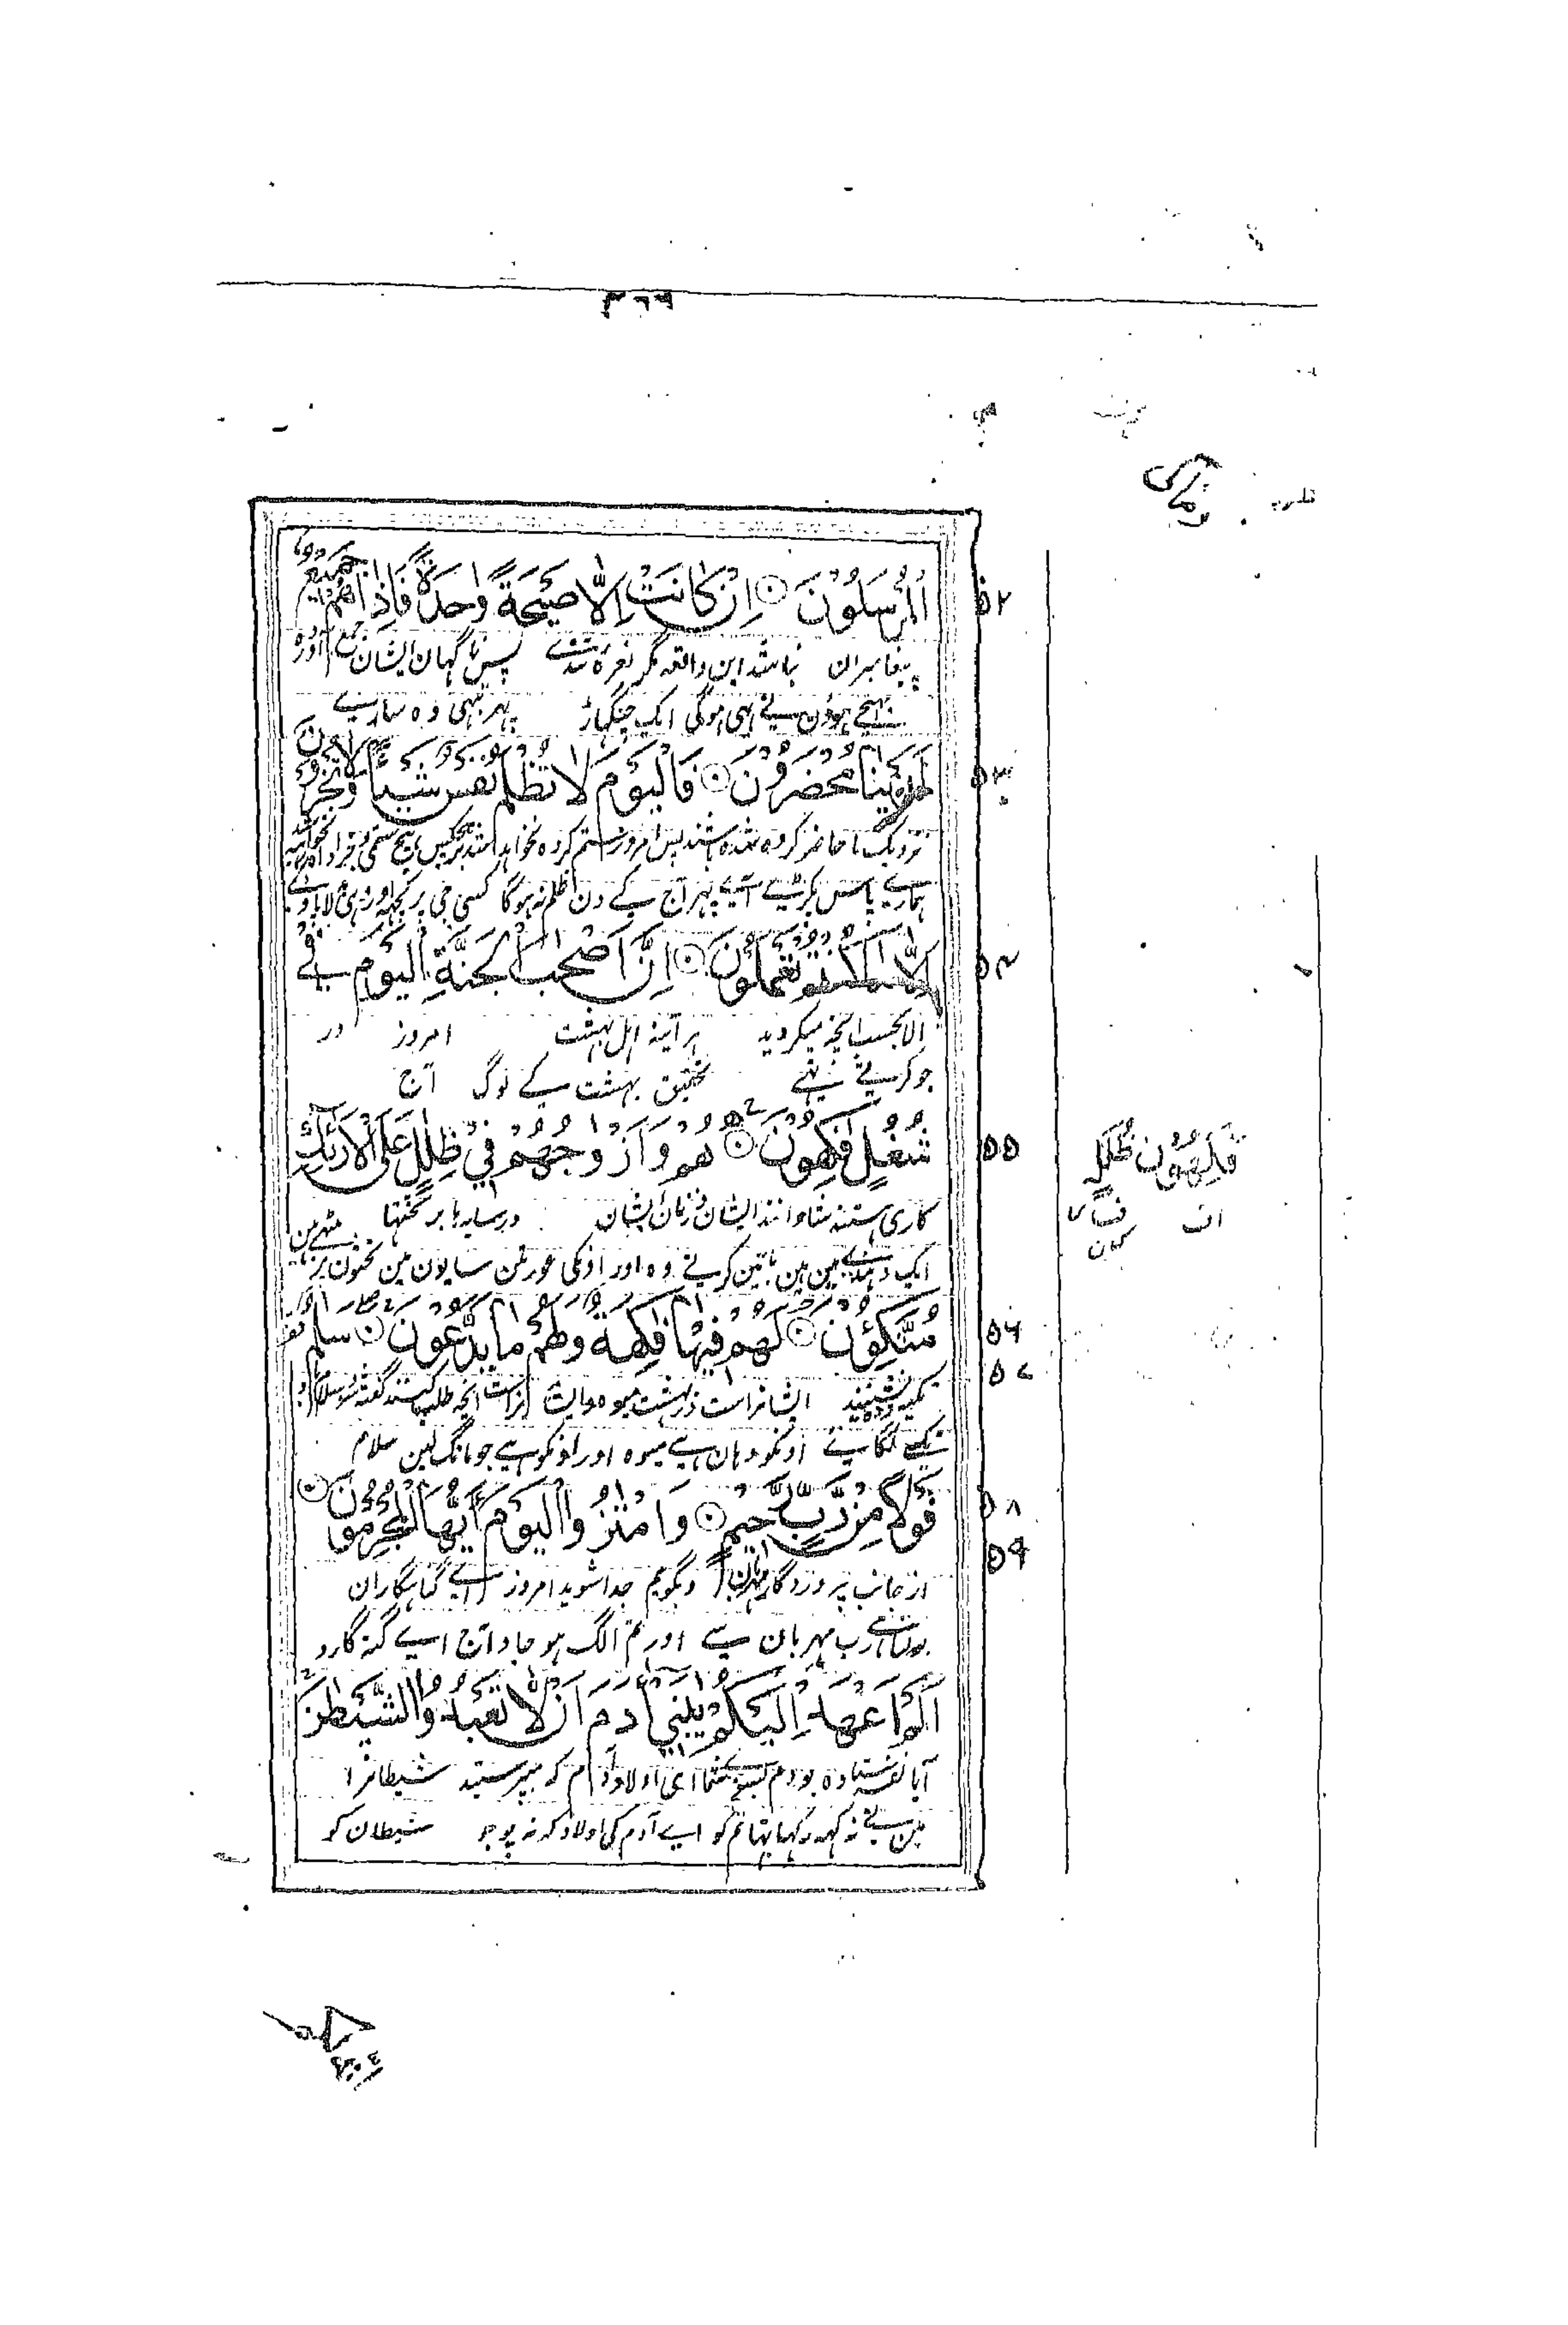 ۳۶۹
۵۲
اَلْمُرْسَلُوْنَ ۝ اِنْ كَانَتْ اِلَّا صَيْحَةً وَّاحِدَةً فَاِذَا هُمْ جَمِيْعٌ
پیغامبران نباشد این واقعه مگر نعره تندے پس ناگهان ایشان جمع آورده
بهیجے ہوؤن نے یہی ہوگی ایک چنگہاڑ پہر تبہی وہ سارے
۵۳
لَّدَيْنَا مُحْضَرُوْنَ ۝ فَالْيَوْمَ لَا تُظْلَمُ نَفْسٌ شَيْئًا وَّلَا تُجْزَوْنَ
نزدیک ما حاضر کرده شده باشند پس امروز ستم کرده نخواهد شد بر هیچکس هیچ ستمی و جزا داده نخواهید شد
ہمارے پاس پکڑے آئے پہر آج کے دن ظلم نہ ہوگا کسی جی پر کچہہ اور وہی بدلا پاؤگے
۵۴
اِلَّا مَا كُنْتُمْ تَعْمَلُوْنَ ۝ اِنَّ اَصْحٰبَ الْجَنَّةِ الْيَوْمَ فِيْ
الا بحسب آنچه میکردید هر آینه اهل بهشت امروز در
جو کرتے تہے تحقیق بہشت کے لوگ آج
۵۵
شُغُلٍ فٰكِهُوْنَ ۝ هُمْ وَاَزْوَاجُهُمْ فِيْ ظِلٰلٍ عَلَى الْاَرَآئِكِ
کاری هستند شادمانند ایشان و زنان ایشان در سایه ها بر تختها
ایک دہندے مین ہین باتین کرتے وہ اور اونکی عورتین سایون مین تختون پر بیٹہے ہین
۵۶
مُتَّكِؤُنَ ۝ لَهُمْ فِيْهَا فَاكِهَةٌ وَّلَهُمْ مَّا يَدَّعُوْنَ ۝ سَلٰمٌ
۵۷
تکیه زده نشینند ایشانراست در بهشت میوه و ایشانراست آنچه طلب کنند گفته شود سلام
تکیے لگائے اونکو وہان ہے میوہ اور اونکو ہے جو مانگ لین سلام
۵۸
قَوْلًا مِّنْ رَّبٍّ رَّحِيْمٍ ۝ وَامْتَازُوا الْيَوْمَ اَيُّهَا الْمُجْرِمُوْنَ ۝
۵۹
از جانب پروردگار مهربان و بگویم جدا شوید امروز اے گناهگاران
بولنا ہے رب مہربان سے اور تم الگ ہو جاو آج اے گنہگارو
اَلَمْ اَعْهَدْ اِلَيْكُمْ يٰبَنِيْٓ اٰدَمَ اَنْ لَّا تَعْبُدُوا الشَّيْطٰنَ
آیا نفرستاده بودم بسوے شما ای اولاد آدم که مپرستید شیطانرا
مین نے نہ کہہ رکہا تہا تم کو اے آدم کی اولاد کہ نہ پوجو شیطان کو